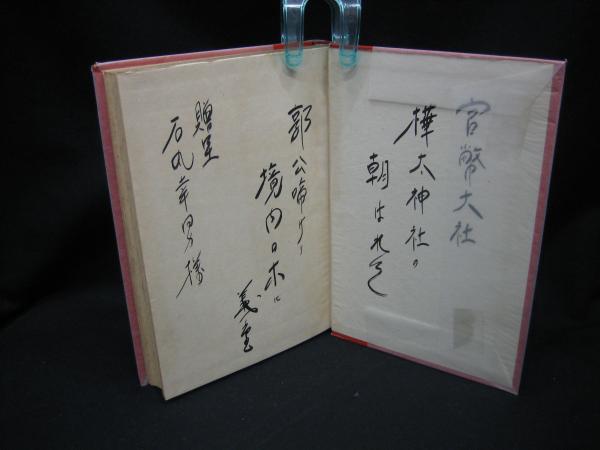 官幣大社
樺太神社の
朝はれて
郭公啼けり
境内の木に
義雲
贈呈
石丸幸男様